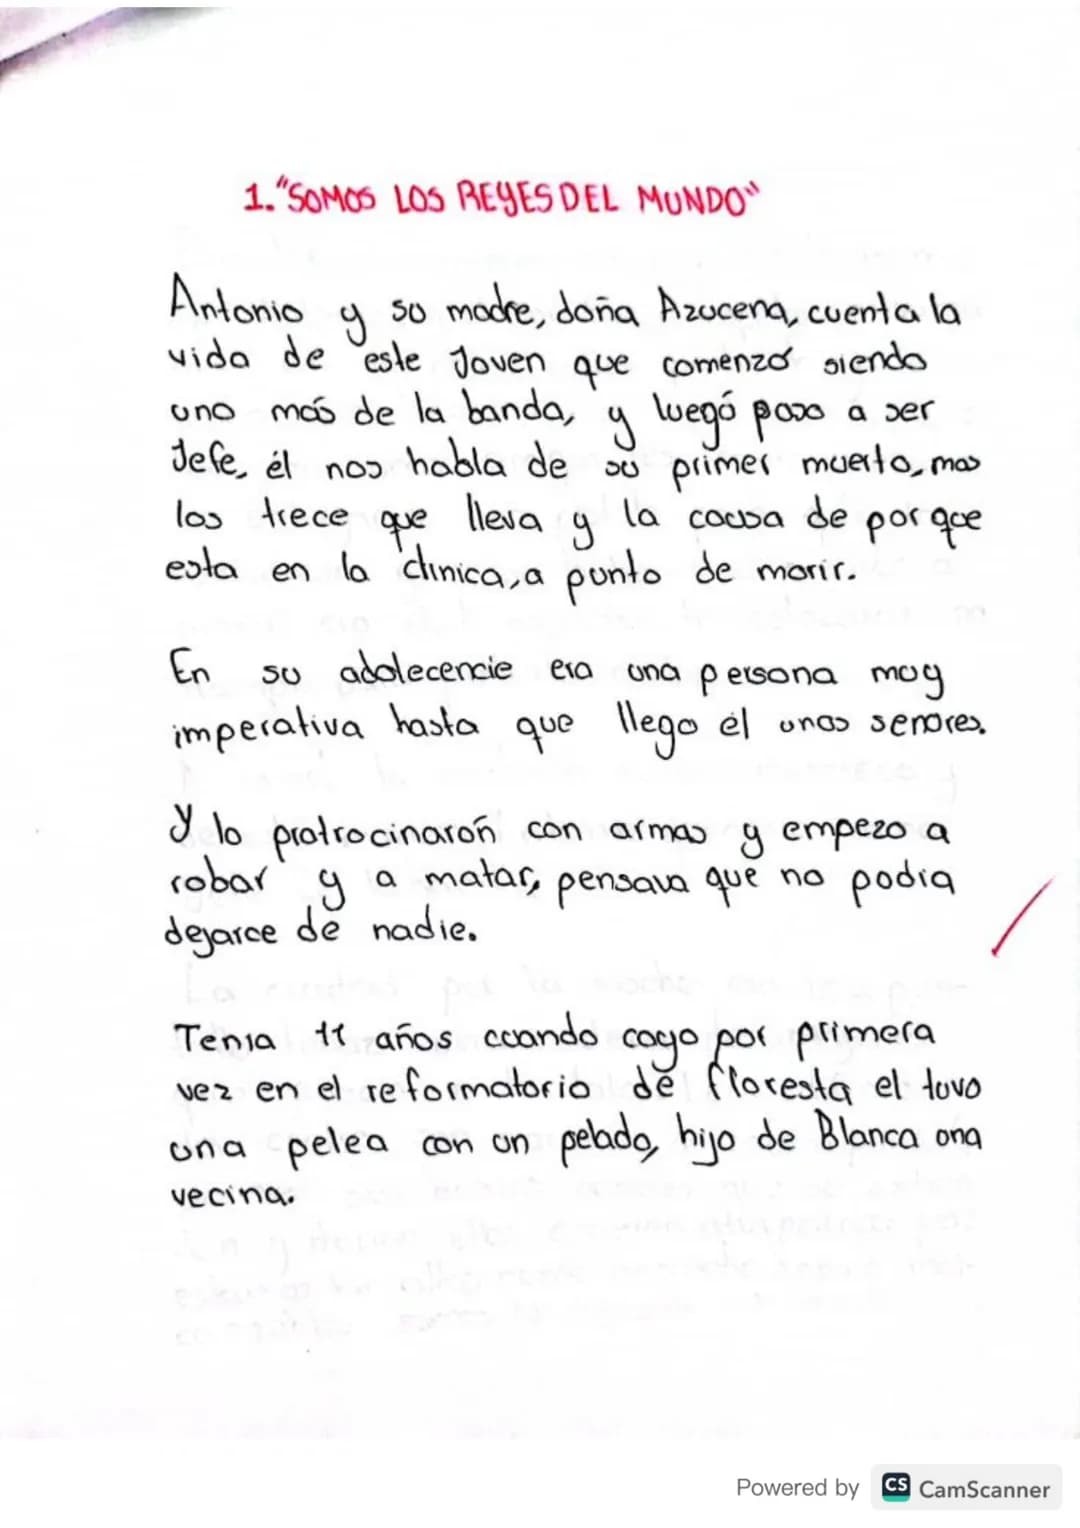 1. "SOMOS LOS REYES DEL MUNDO"
Antonio y su madre, doña Azucena, cuenta la
vida de este Joven que comenzó siendo
uno más de la banda, y luegó paso a ser
Jefe, él nos habla de su primer muerto, mas
los trece que lleva y la causa de por que
esta en la clinica, a punto de morir.
En su adolecencie era una persona muy
imperativa hasta que llego él unos señores.
Y lo protrocinaroñ con armas y empezo a
robar y a matar, pensava que no podia
dejarce de nadie.
Tenia 11 años cuando cayo por primera
vez en el reformatorio de floresta el tuvo
una pelea con un pelado, hijo de Blanca una
vecina.
Powered by CS CamScanner